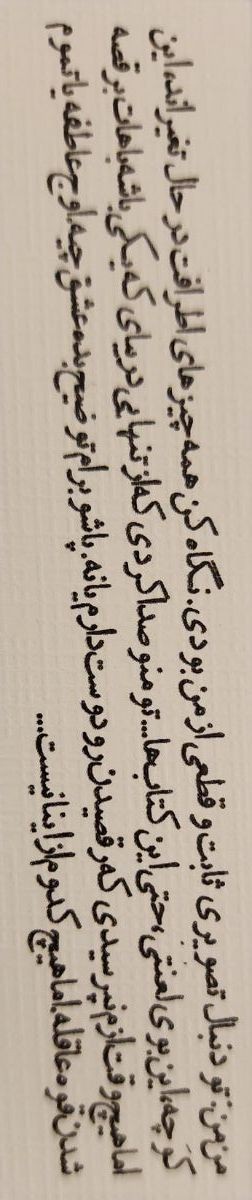 من من: تو دنبال تصویری ثابت و قطعی از من بودی. نگاه کن همه چیزهای اطرافت در حال تغییراند، این
کوچه، این بوی لعنتی، حتی این کتاب‌ها... تو منو صدا کردی که از تنهایی دربیای که یکی باشه باهات برقصه
اما هیچ وقت ازم نپرسیدی که رقصیدن رو دوست دارم یا نه. پاشو برام توضیح بده عشق چیه، اوج عاطفه یا تموم
شدن قوه عاقله. اما هیچ کدوم از اینا نیست...